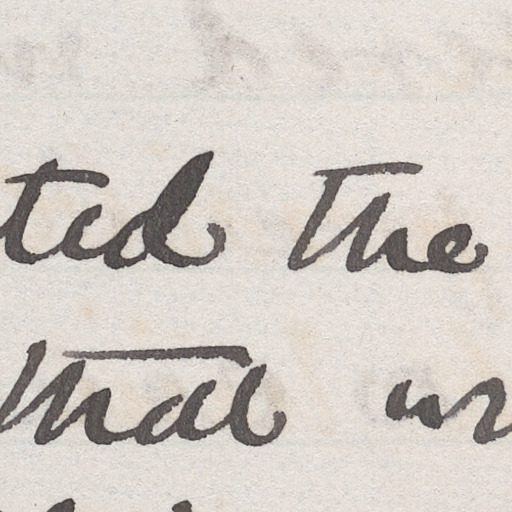 ted the
that